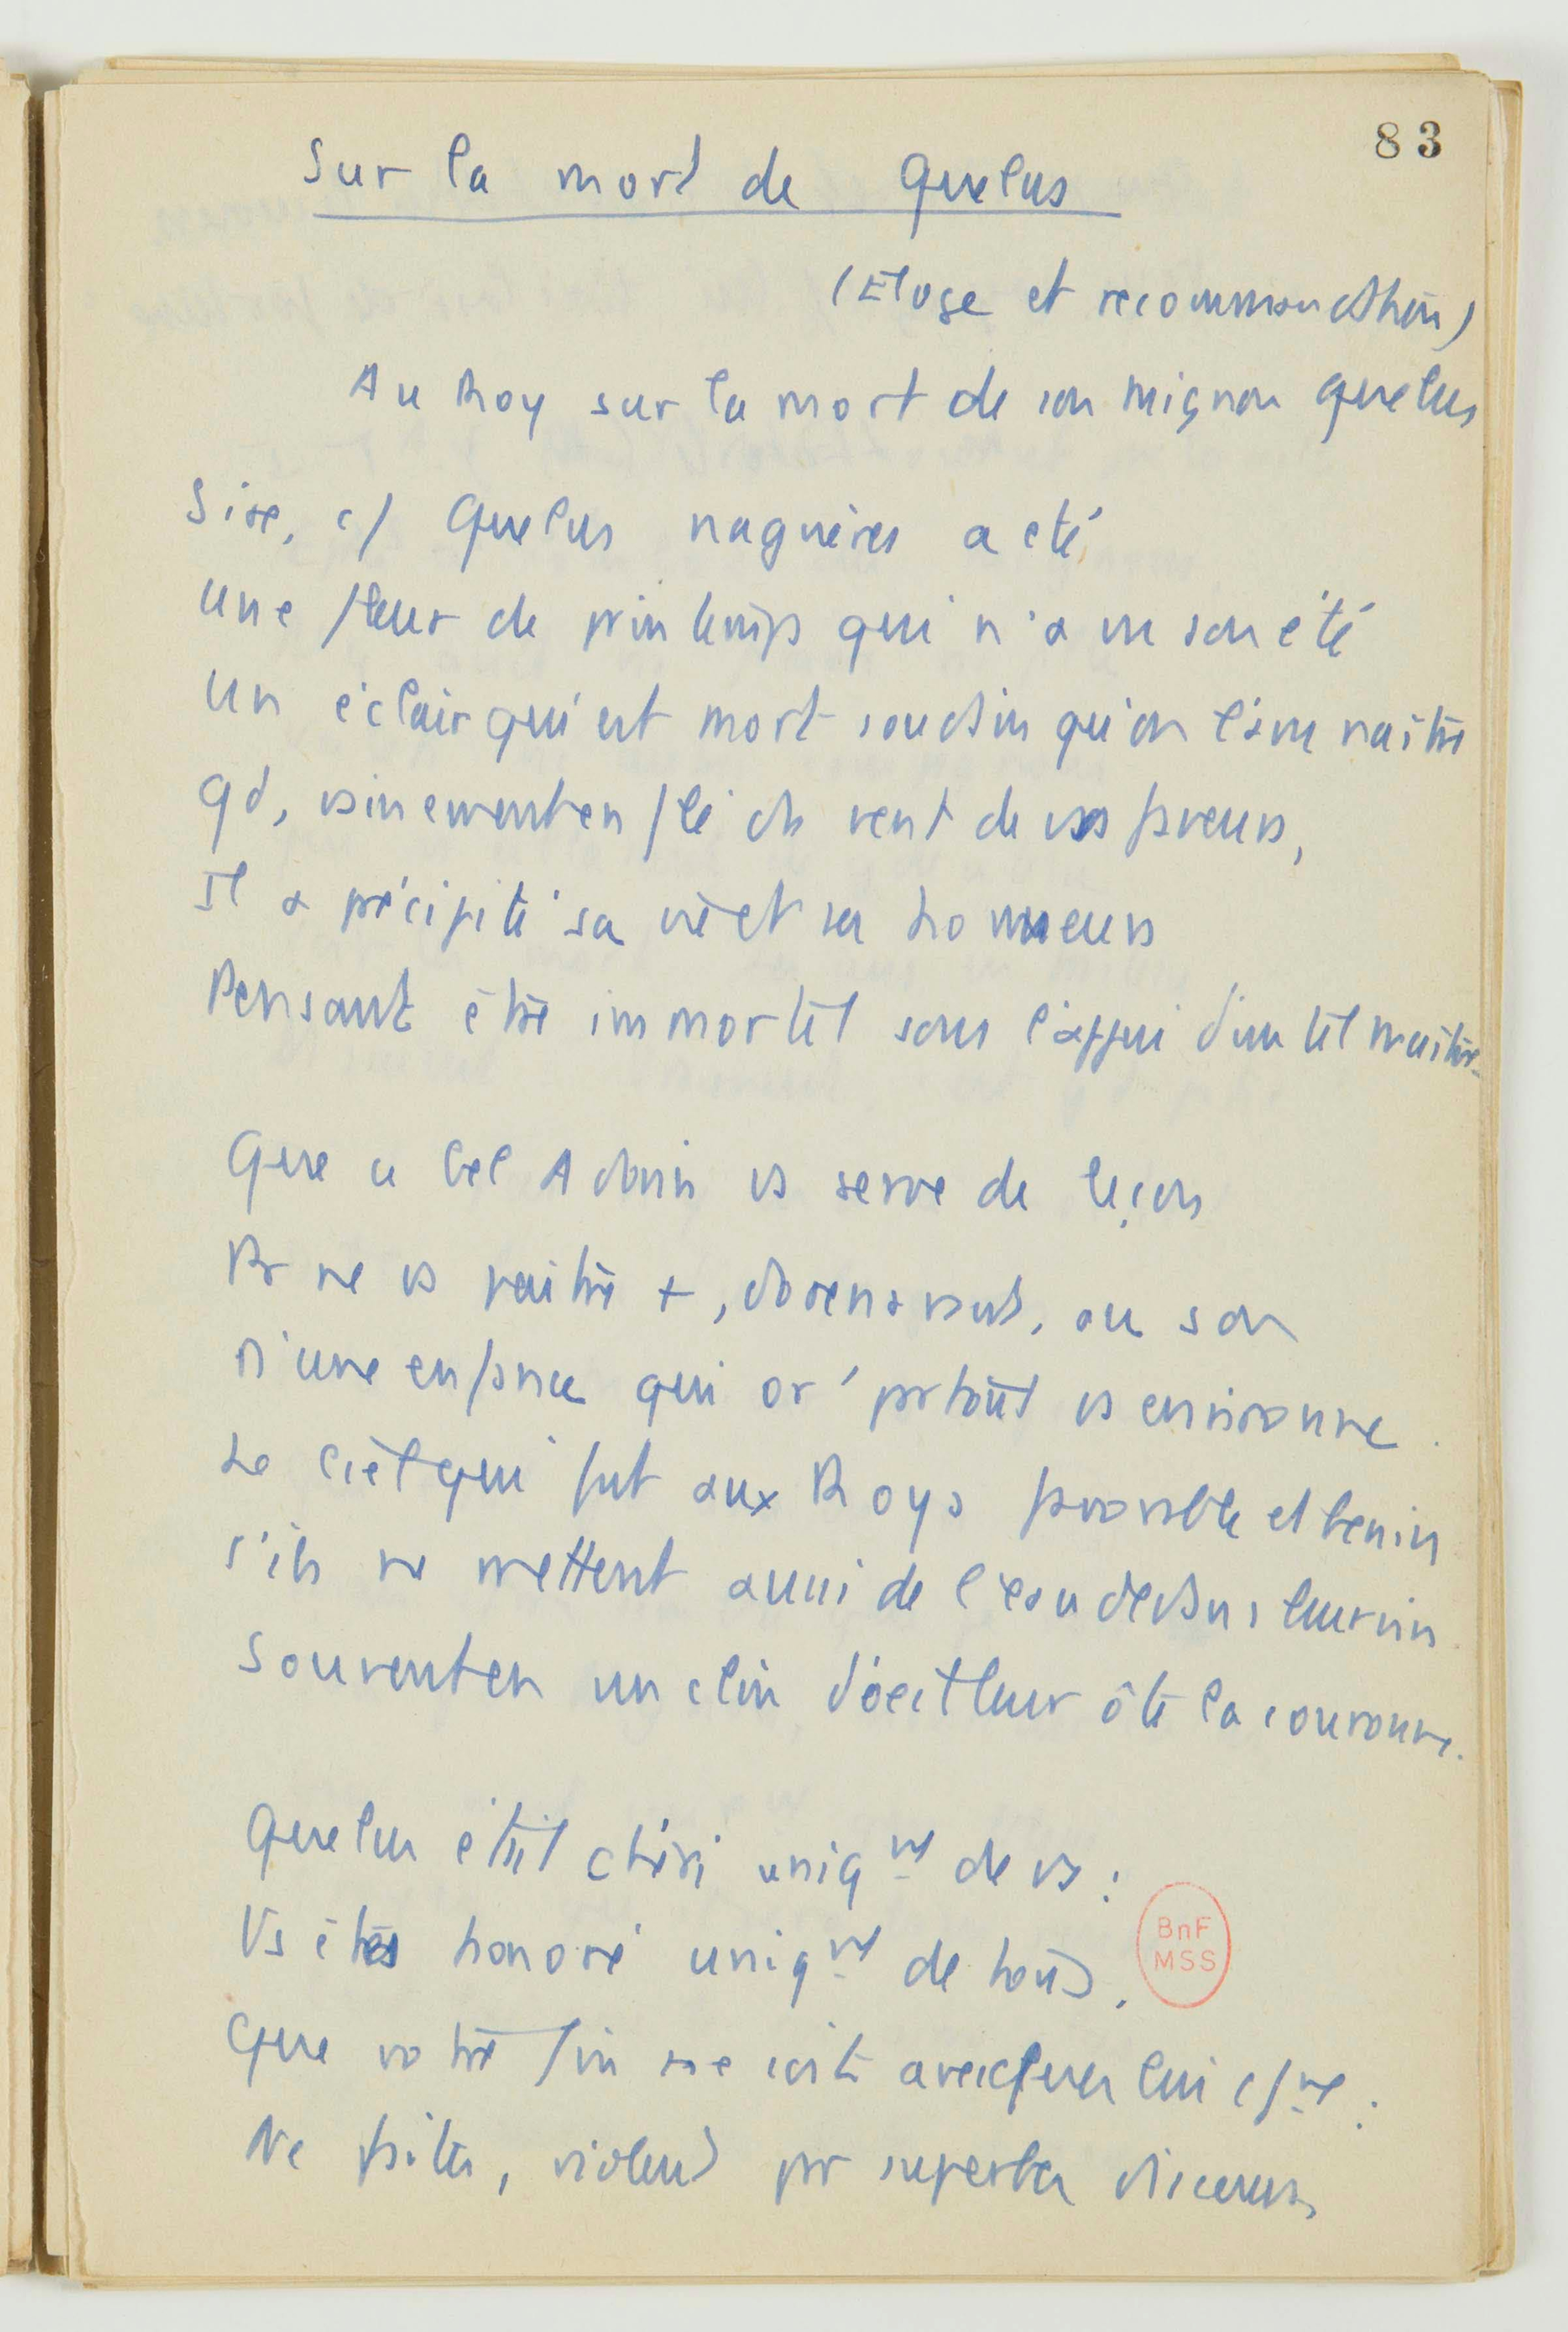 83
Sur la mort de Quelus
(Eloge et recommandation)
Au Roy sur la mort de son mignon Quelus
Sire, c/ Quelus naguères a été
une fleur de printemps qui n'a vu son été
un éclair qui est mort soudain qu'on l'a vu naître
qd, vainement enflé du vent de vos faveurs,
Il a précipité sa vie et ses honneurs
Pensant être immortel sous l'appui d'un tel maître.
Que ce bel Adonis vs serve de leçon
Pr ne vs paître +, dorenavant, au son
D'une enfance qui or' partout vs environne.
Le ciel qui fut aux Roys favorable et benin
s'ils ne mettent aussi de l'eau dedans leur vin
Souvent en un clin d'oeil leur ôte la couronne.
Quelus était chéri uniqnt de vs :
Vs êtes honoré uniqnt de tous.
Que votre fin ne soit avecques lui c/ne :
Ne faites, violent par superbes
BnF
MSS